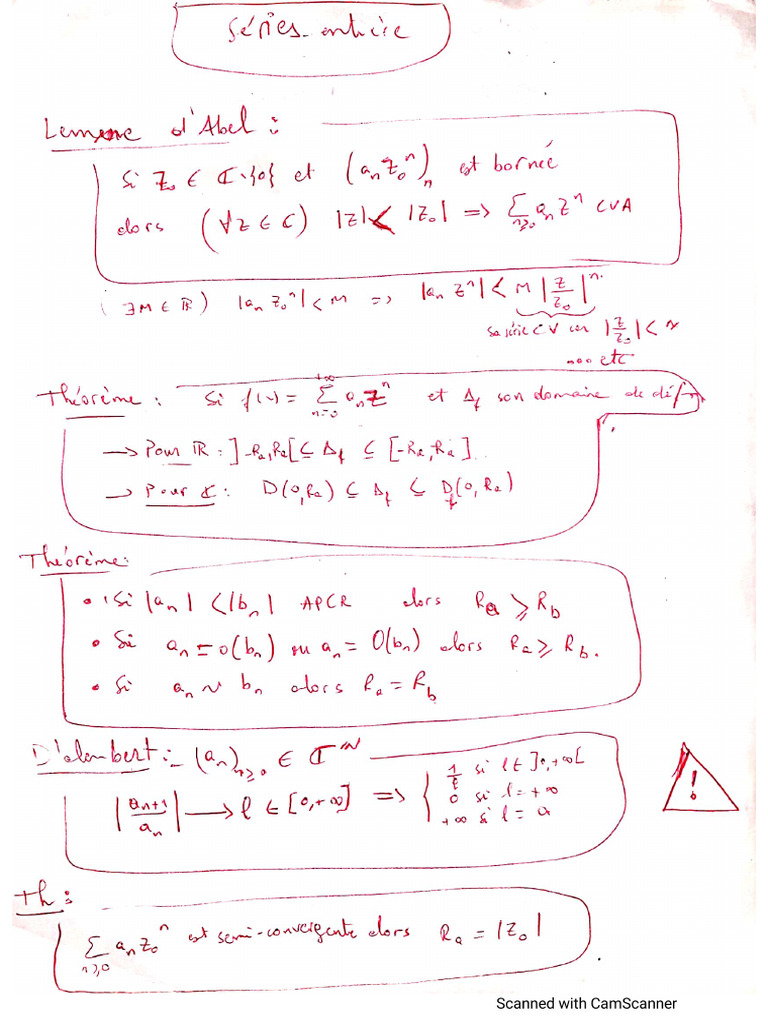 Séries entière
Lemme d'Abel :
Si Z₀ ∈ ℂ\{0} et (aₙ Z₀ⁿ)ₙ est bornée
alors (∀Z ∈ C) |Z| < |Z₀| => ∑_{n≥0} aₙ Zⁿ CVA
(∃M ∈ ℝ) |aₙ Z₀ⁿ| < M => |aₙ Zⁿ| < M |Z/Z₀|ⁿ
sa série CV car |Z/Z₀| < 1
... etc
Théorème : Si f(x) = ∑_{n=0}^{+∞} aₙ Zⁿ et Δ_f son domaine de déf
→ Pour ℝ : ]-Ra, Ra[ ⊆ Δ_f ⊆ [-Ra, Ra]
→ Pour ℂ : D(0,Ra) ⊆ Δ_f ⊆ D_f(0,Ra)
Théorème:
• Si |aₙ| < |bₙ| APCR alors Ra ≥ R_b
• Si aₙ = o(bₙ) ou aₙ = O(bₙ) alors Ra ≥ R_b.
• Si aₙ ~ bₙ alors Ra = R_b
D'alembert :_ (aₙ)_{n≥0} ∈ ℂ^ℕ
|aₙ₊₁/aₙ| → l ∈ [0,+∞] => { 1/l si l ∈ ]0,+∞[
0 si l = +∞
+∞ si l = 0
!
Th :
∑_{n≥0} aₙ z₀ⁿ est semi-convergente alors Ra = |Z₀|
Scanned with CamScanner